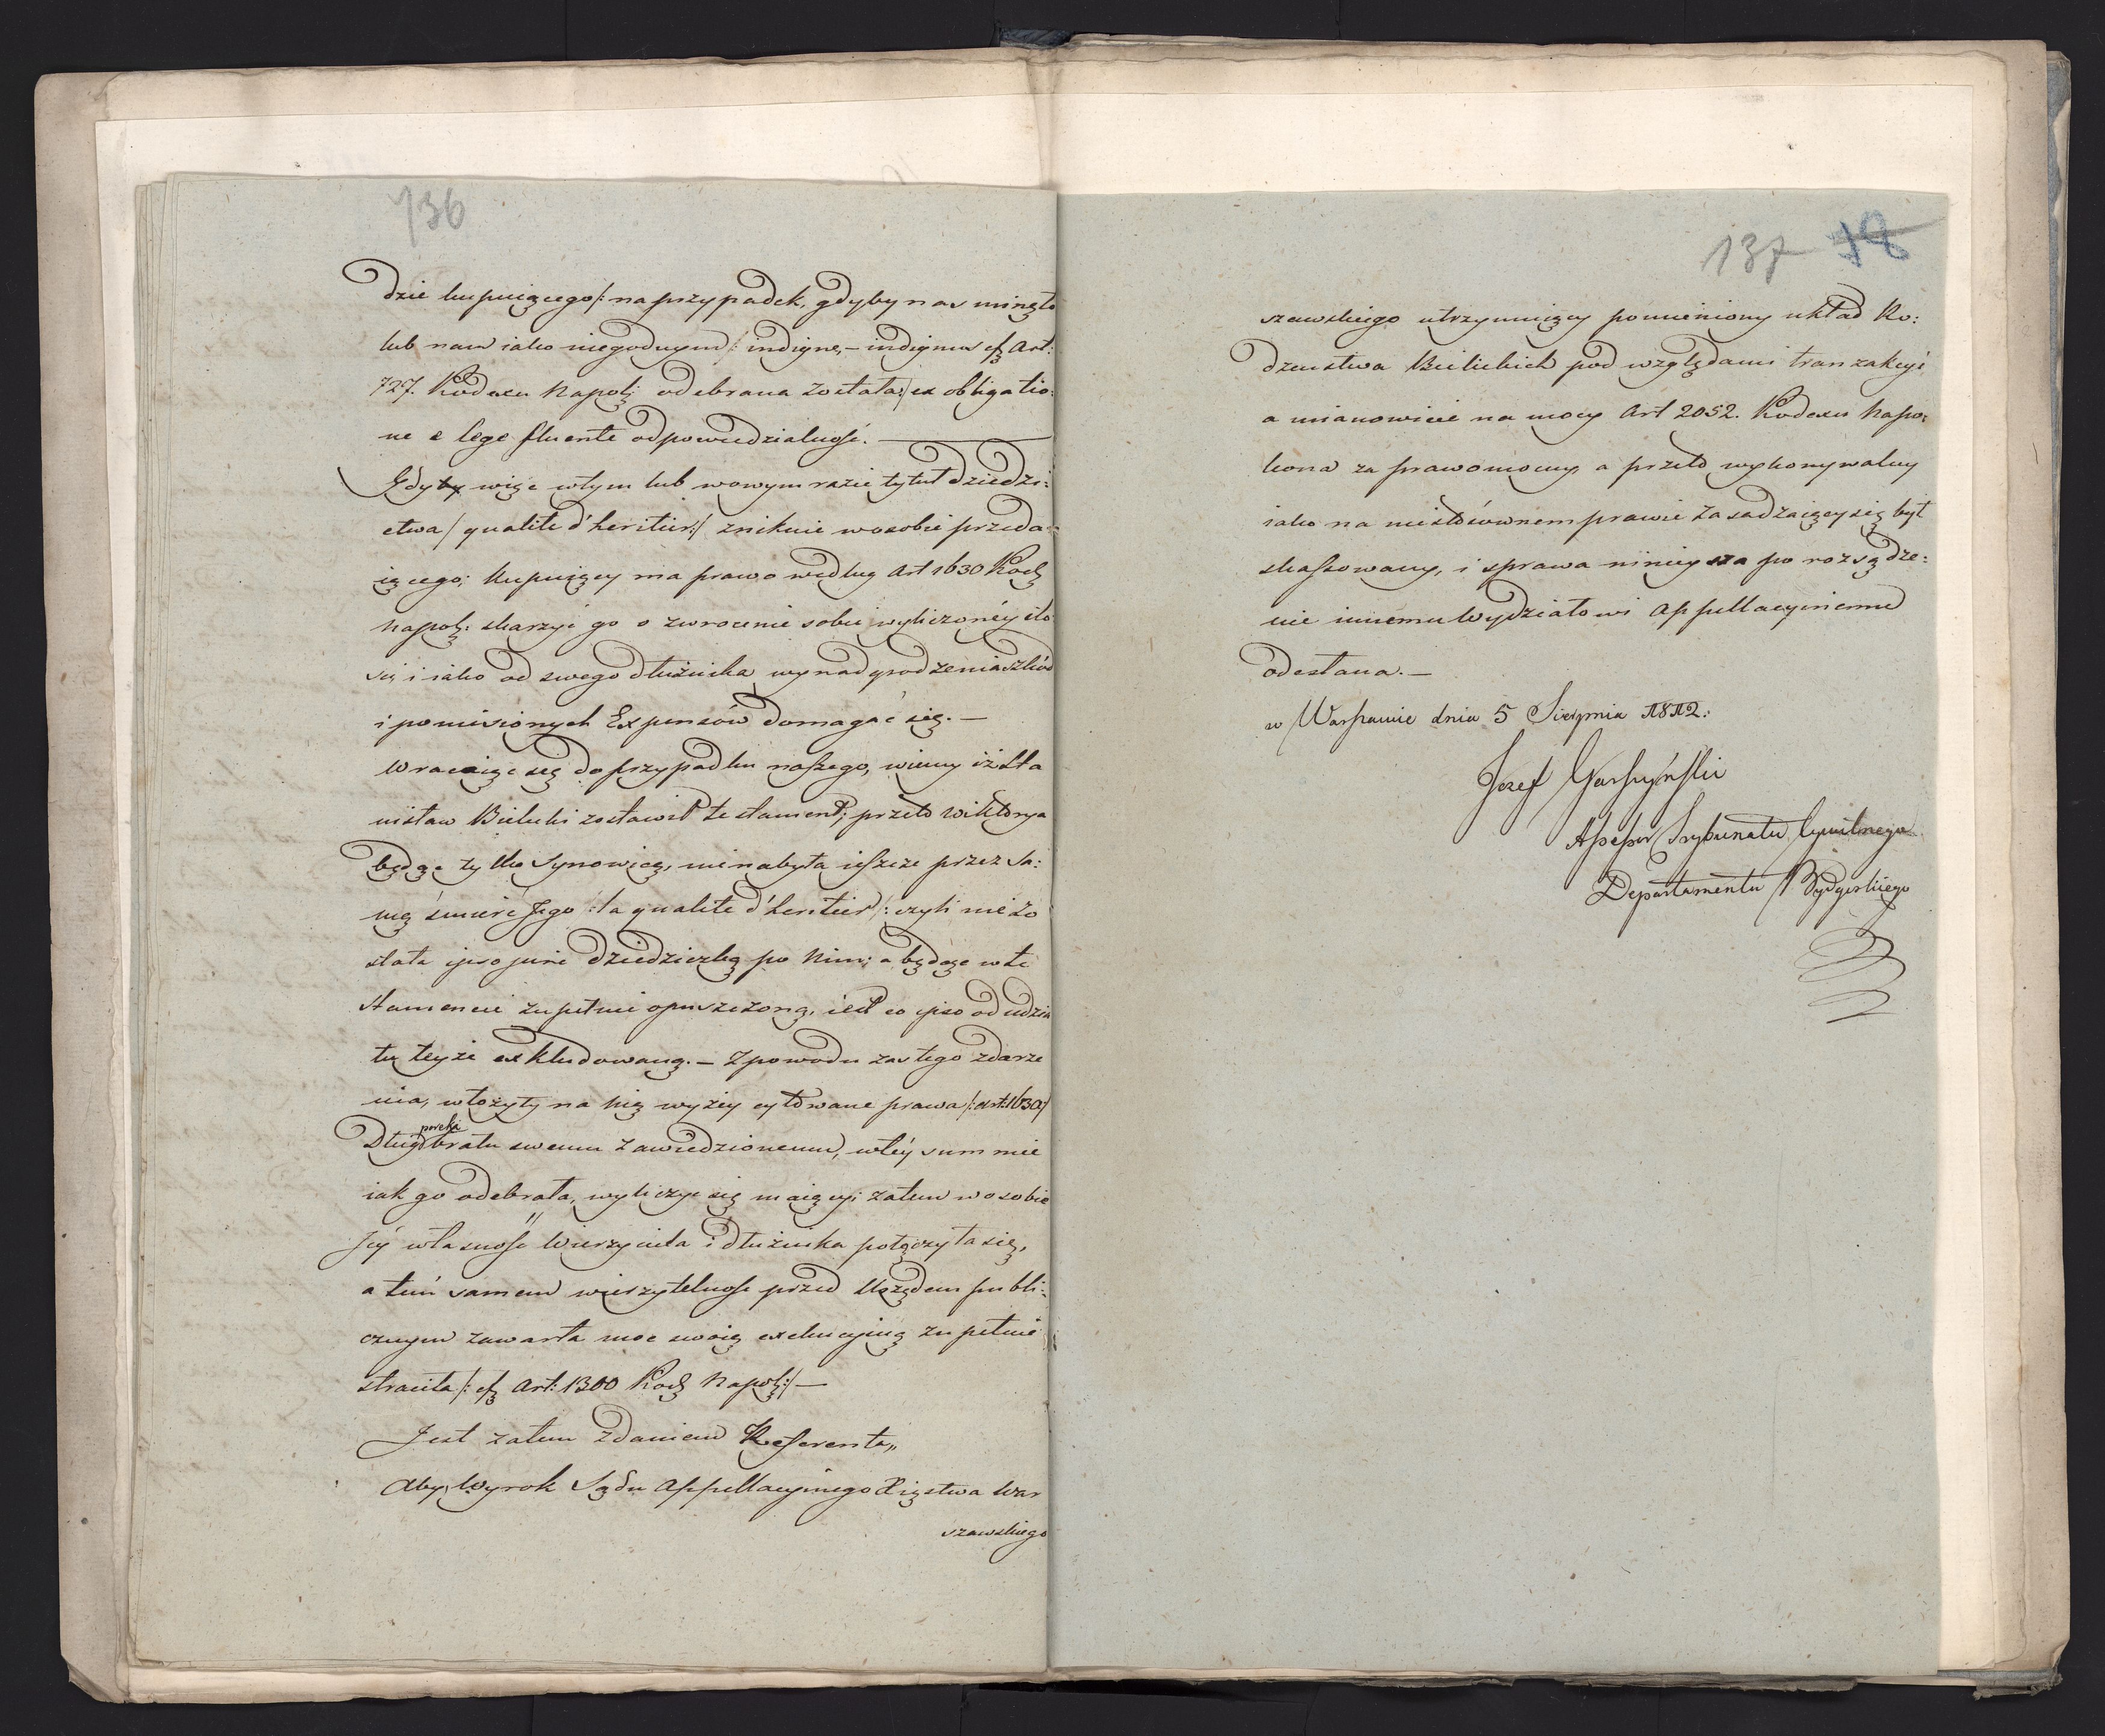 136
dzie kupuiącego /: na przypadek, gdyby nas minęło
lub nam iako niegodnym /: indigne, – indignus cf Art:
727. Kodexu Napol: odebrana została :/ ex obligatio:
ne e lege fluente odpowiedzialność. —
Gdyby więc w tym lub w owym razie tytuł dziedzi:
ctwa /: qualité d'heritier :/ zniknie w osobie przeda:
iącego; kupuiący ma prawo według Art 1630 Kod:
Napol: skarzyć go o zwrocenie sobie wyliczonéy ilo
ści i iako od swego dłużnika wynadgrodzenia szkód
i poniesionych Expensów domagać się. —
Wracaiąc się do przypadku naszego, wiemy iż Sta
nisław Bielicki zostawił testament; przeto Wiktorya
będąc tylko Synowicą, nie nabyła ieszcze przez sa:
mą śmierć Jego /: la qualité d'heritier :/ czyli nie zo
stała ipso jure dziedziczką po Nim; a będąc w te
stamencie zupełnie opuszczoną, iest eo ipso od udzia
łu teyże exkludowaną. — Z powodu zaś tego zdarze
nia, włożyły na nią wyżey cytowane prawa /: Art: 1630 :/
Dług bratu swemu zawiedzionemu, w téy summie
iak go odebrała, wyliczyć się maiący; zatem w osobie
Jéy własność Wierzyciela i dłużnika połączyła się,
a tém samem wierzytelność przed Urzędem publi:
cznym zawarta moc swoią exekucyiną zupełnie
straciła /: cf Art: 1300 Kod: Napol: :/ —
Jest zatem zdaniem Referenta„
Aby Wyrok Sądu Appellacyinego Xięstwa War
szawskiego
137 18
szawskiego utrzymuiący pomieniony układ Ro:
dzeństwa Bielickich pod względami tranzakcyi
a mianowicie na mocy Art 2052. Kodexu Napo:
leona za prawomocny, a przeto wykonywalny
iako na niestósownem prawie zasadzaiący się był
skassowany, i sprawa ninieysza po rozsądze:
nie innemu Wydziałowi Appellacyinemu
odesłana. —
w Warszawie dnia 5 Sierpnia 1812.
Jozef
Assessor Trybunału Cywilnego
Departamentu Bydgoskiego